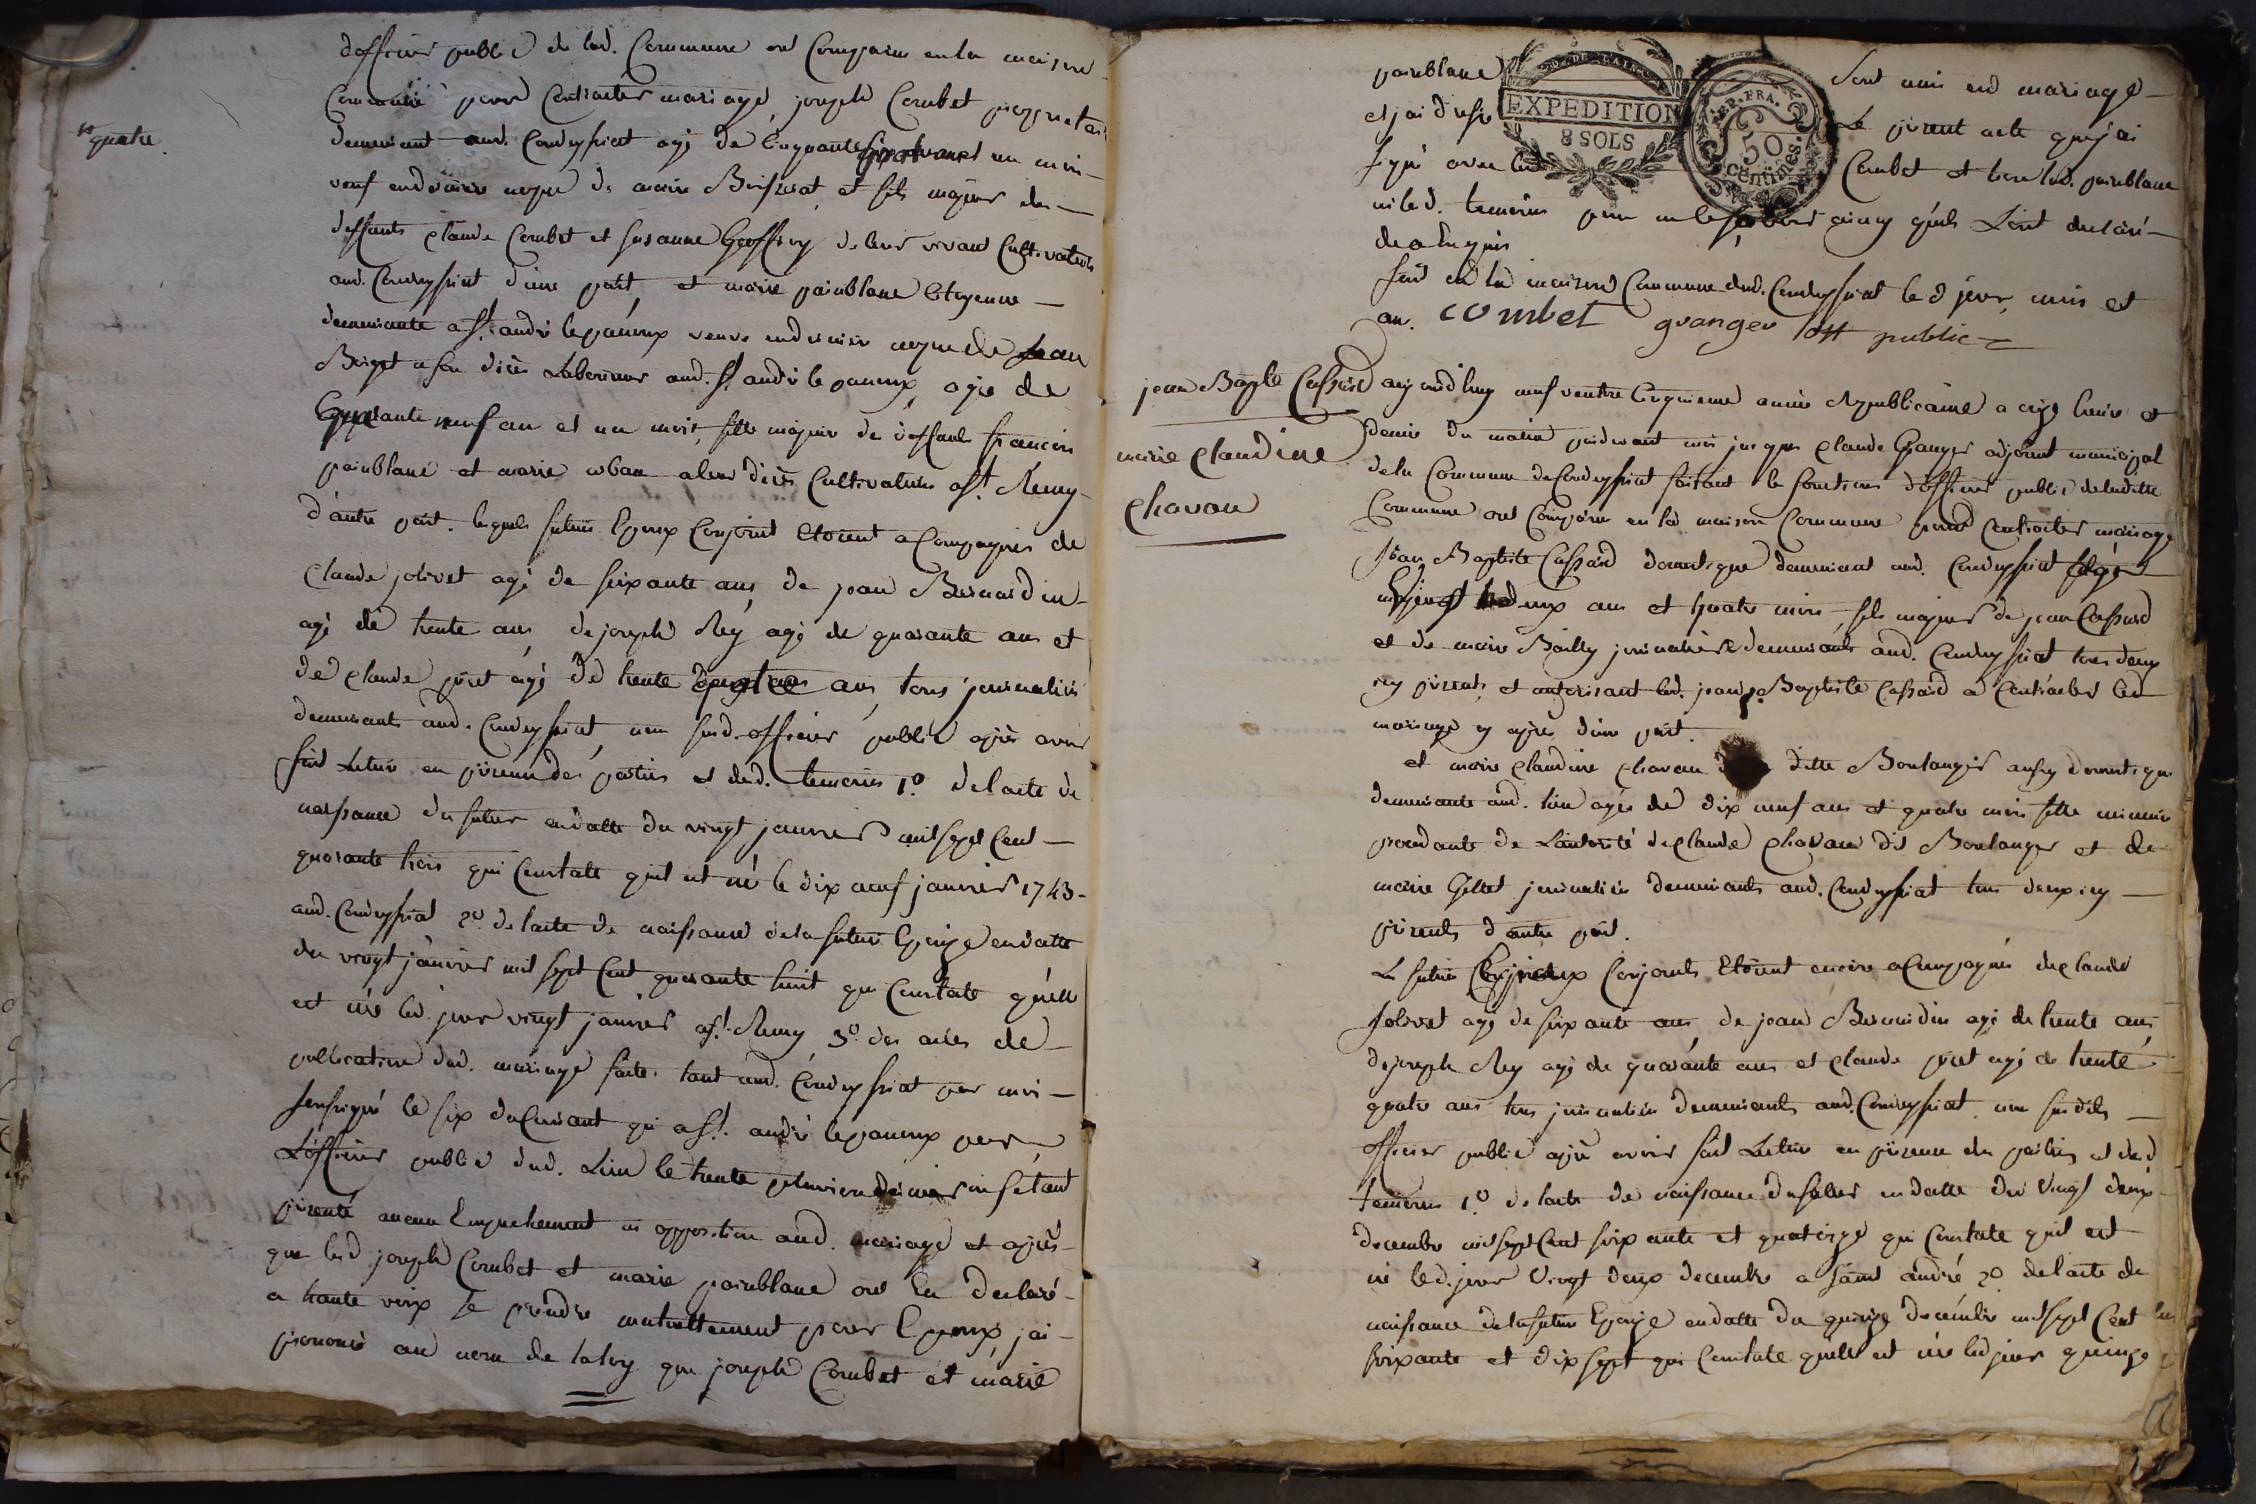 d'officier public de lad. Commune ont Comparu en la maison
Commune pour Contracter mariage, joseph Combet propriétaire
demeurant aud. Condeyssiat agé de Cinquante quatre ans et un mois
veuf en dernière noçe de marie et fils majeur des
deffunts Claude Combet et susanne Geoffray de leur vivant Cultivateurs
aud. Condeyssiat d'une part, et marie painblanc Citoyenne
demeurante a St. andré lepanoux veuve en dernier noçe de Jean
a son décès Laboureur aud. St. andré le panoux, agée de
quarante neuf an et un mois, fille majeure de deffunts francois
painblanc et marie a leur décès Cultivateurs a St. Remy
d'autre part. lesquels futurs Epoux Conjoint Etoient acCompagnés de
Claude jolivet agé de soixante ans, de jean Bernardin
agé de trente ans, de joseph Rey agé de quarante ans et
de Claude agé de trente quatre ans, tous journaliers
demeurants aud. Condeyssiat, moi susd. officier public après avoir
fait Lecture en présence des parties et desd. temoins 1o. de l'acte de
naissance du futur en datte du vingt janvier mil sept Cent
quarante trois qui Constate qu'il est né le dix neuf janvier 1743.
aud. Condeyssiat 2o. de l'acte de naissance de la future Epouze en datte
du vingt janvier mil sept Cent quarante huit qui Constate qu'elle
est née led. jour vingt janvier a St. Remy 3o. des actes de
publication dud. mariage faite tant aud. Condeyssiat par moi
soussigné le six du Courant qu'a St. andré lepanoux par
L'officier public dud. Lieu le trente pluviose dernier ne s'etant
présenté aucun Empechement ni opposition aud. mariage et après
que led joseph Combet et marie painblanc ont Eu declaré
a haute voix se prendre mutuellement pour Epoux, j'ai
prononcé au nom de la loy que joseph Combet et marie
quatre
painblanc Sont unis en mariage
et jai dressé Le présent acte que j'ai
signé avec led. Combet et non lad. painblanc
ni led. temoins pour ne le savoir ainsy qu'ils L'ont declaré
de a Enquis
fait en la maison Commune dud. Condeyssiat le d jour, mois et
an. combet granger off public
EXPEDITION
8 SOLS
REP. FRA.
50
centimes
jean Baptte Cassard
marie Claudine
Chavan
aujourd'huy neuf ventose Cinquieme année Republicaine a onze heure et
demie du matin pardevant moi jacques Claude Granger adjoint municipal
de la Commune de Condeyssiat faisant le fonctions d'officier public de laditte
Commune ont Comparu en la maison Commune pour Contracter mariage
Jean Baptiste Cassard domestique demeurant aud. Condeyssiat agé
vingt deux ans et quatre mois, fils majeur de jean Cassard
et de marie Bailly journaliers demeurants aud. Condeyssiat tous deux
icy présents, et autorisant led. jean Baptiste Cassard a Contracter led
mariage cy après d'une part.
et marie Claudine Chavan ditte Boulanger aussy domestique
demeurante aud. lieu agée de dix neuf ans et quatre mois fille mineure
procedante de L'autorité de Claude Chavan dit Boulanger et de
marie Gillet journaliers demeurants aud. Condeyssiat tous deux icy
présents d'autre part.
Le futur Epoux Conjoints Etoient encore acCompagnés de Claude
Jolivet agé de soixante ans, de jean Bernardin agé de trente ans,
de joseph Rey agé de quarante ans et Claude agé de trente
quatre ans tous journaliers demeurants aud. Condeyssiat. moi susdits
officier public après avoir fait Lecture en présence des parties et desd
temoins 1o. de l'acte de naissance du futur en datte du vingt deux
decembre mil sept Cent soixante et quatorze qui Constate qu'il est
né led. jour vingt deux decembre a Saint andré 2o. de l'acte de
naissance de la future Epouze en datte du quinze decembre mil sept Cent
soixante et dix sept qui Constate qu'elle est née led jour quinze